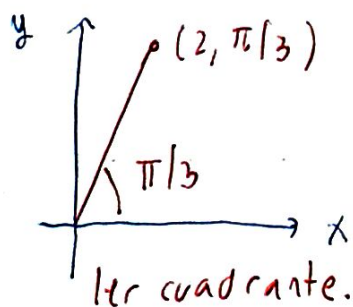 y
(2, π/3)
π/3
x
1er cuadrante.